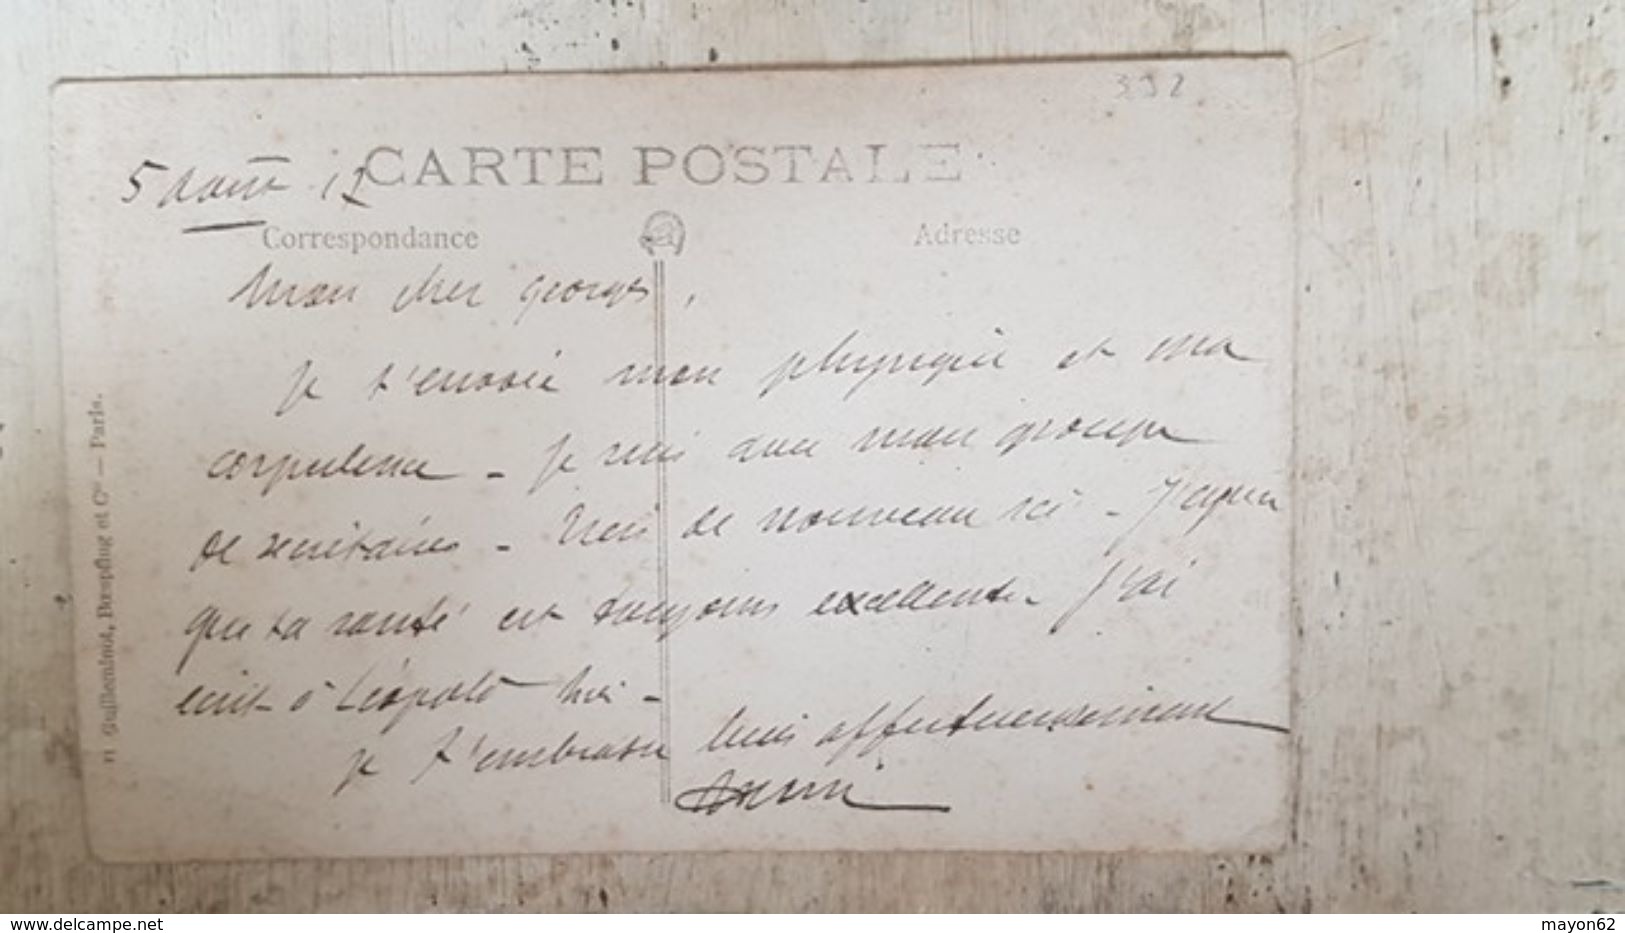 392
CARTE POSTALE
5 Août 12
Correspondance
Adresse
Mon cher Georges,
Je t'envoie mon physique et ma
corpulence - Je suis avec mon groupe
de secrétaires - Rien de nouveau ici - J'espère
que ta santé est toujours excellente - J'ai
écrit à Léopold hier -
Je t'embrasse bien affectueusement
11 Guilleminot, Bœspflug et Cie — Paris.
www.delcampe.net
mayon62